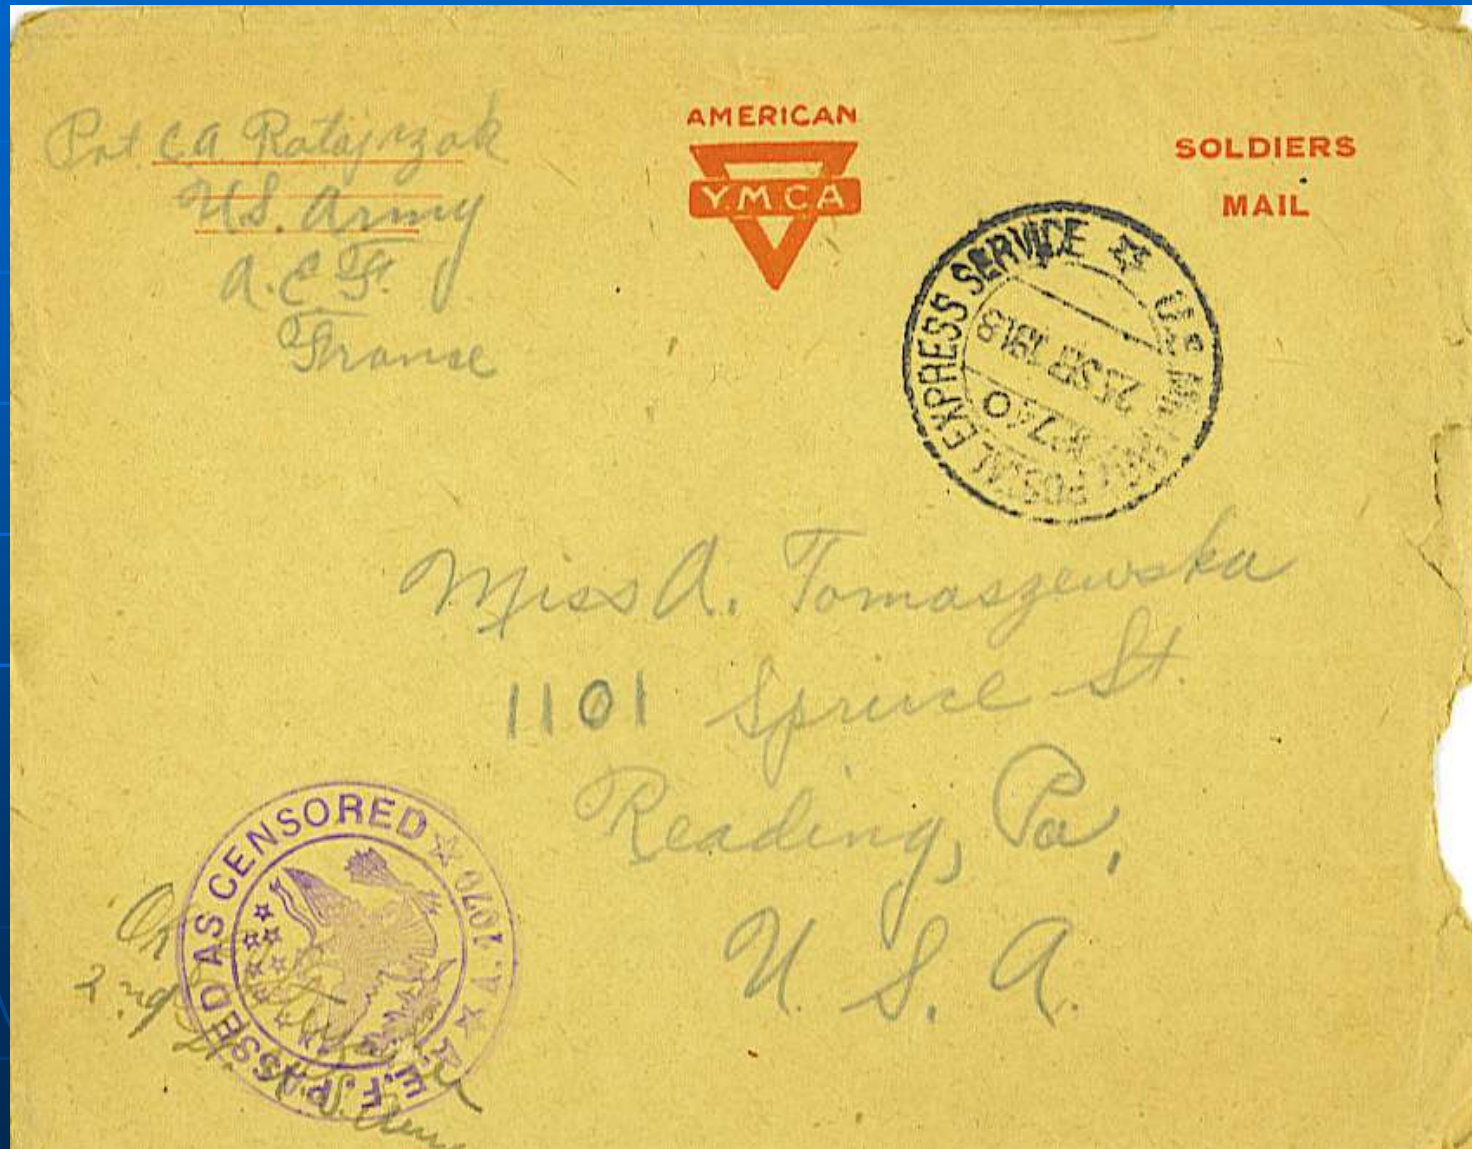 Pvt C A Ratajczak
U.S. Army
A.E.F.
Franse
AMERICAN
YMCA
SOLDIERS
MAIL
U.S. MILITARY POSTAL EXPRESS SERVICE
25 SEP 1918
740
Miss A. Tomaszewska
1101 Spruce St.
Reading, Pa,
U. S. A.
A.E.F. PASSED AS CENSORED
OK
2nd Lt.